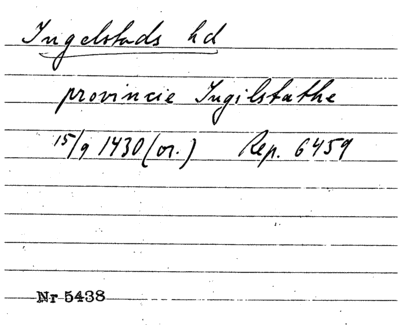 Ingelstads hd
provincie Ingilstathe
15/9 1430 (or.) Rep. 6459
Nr 5438